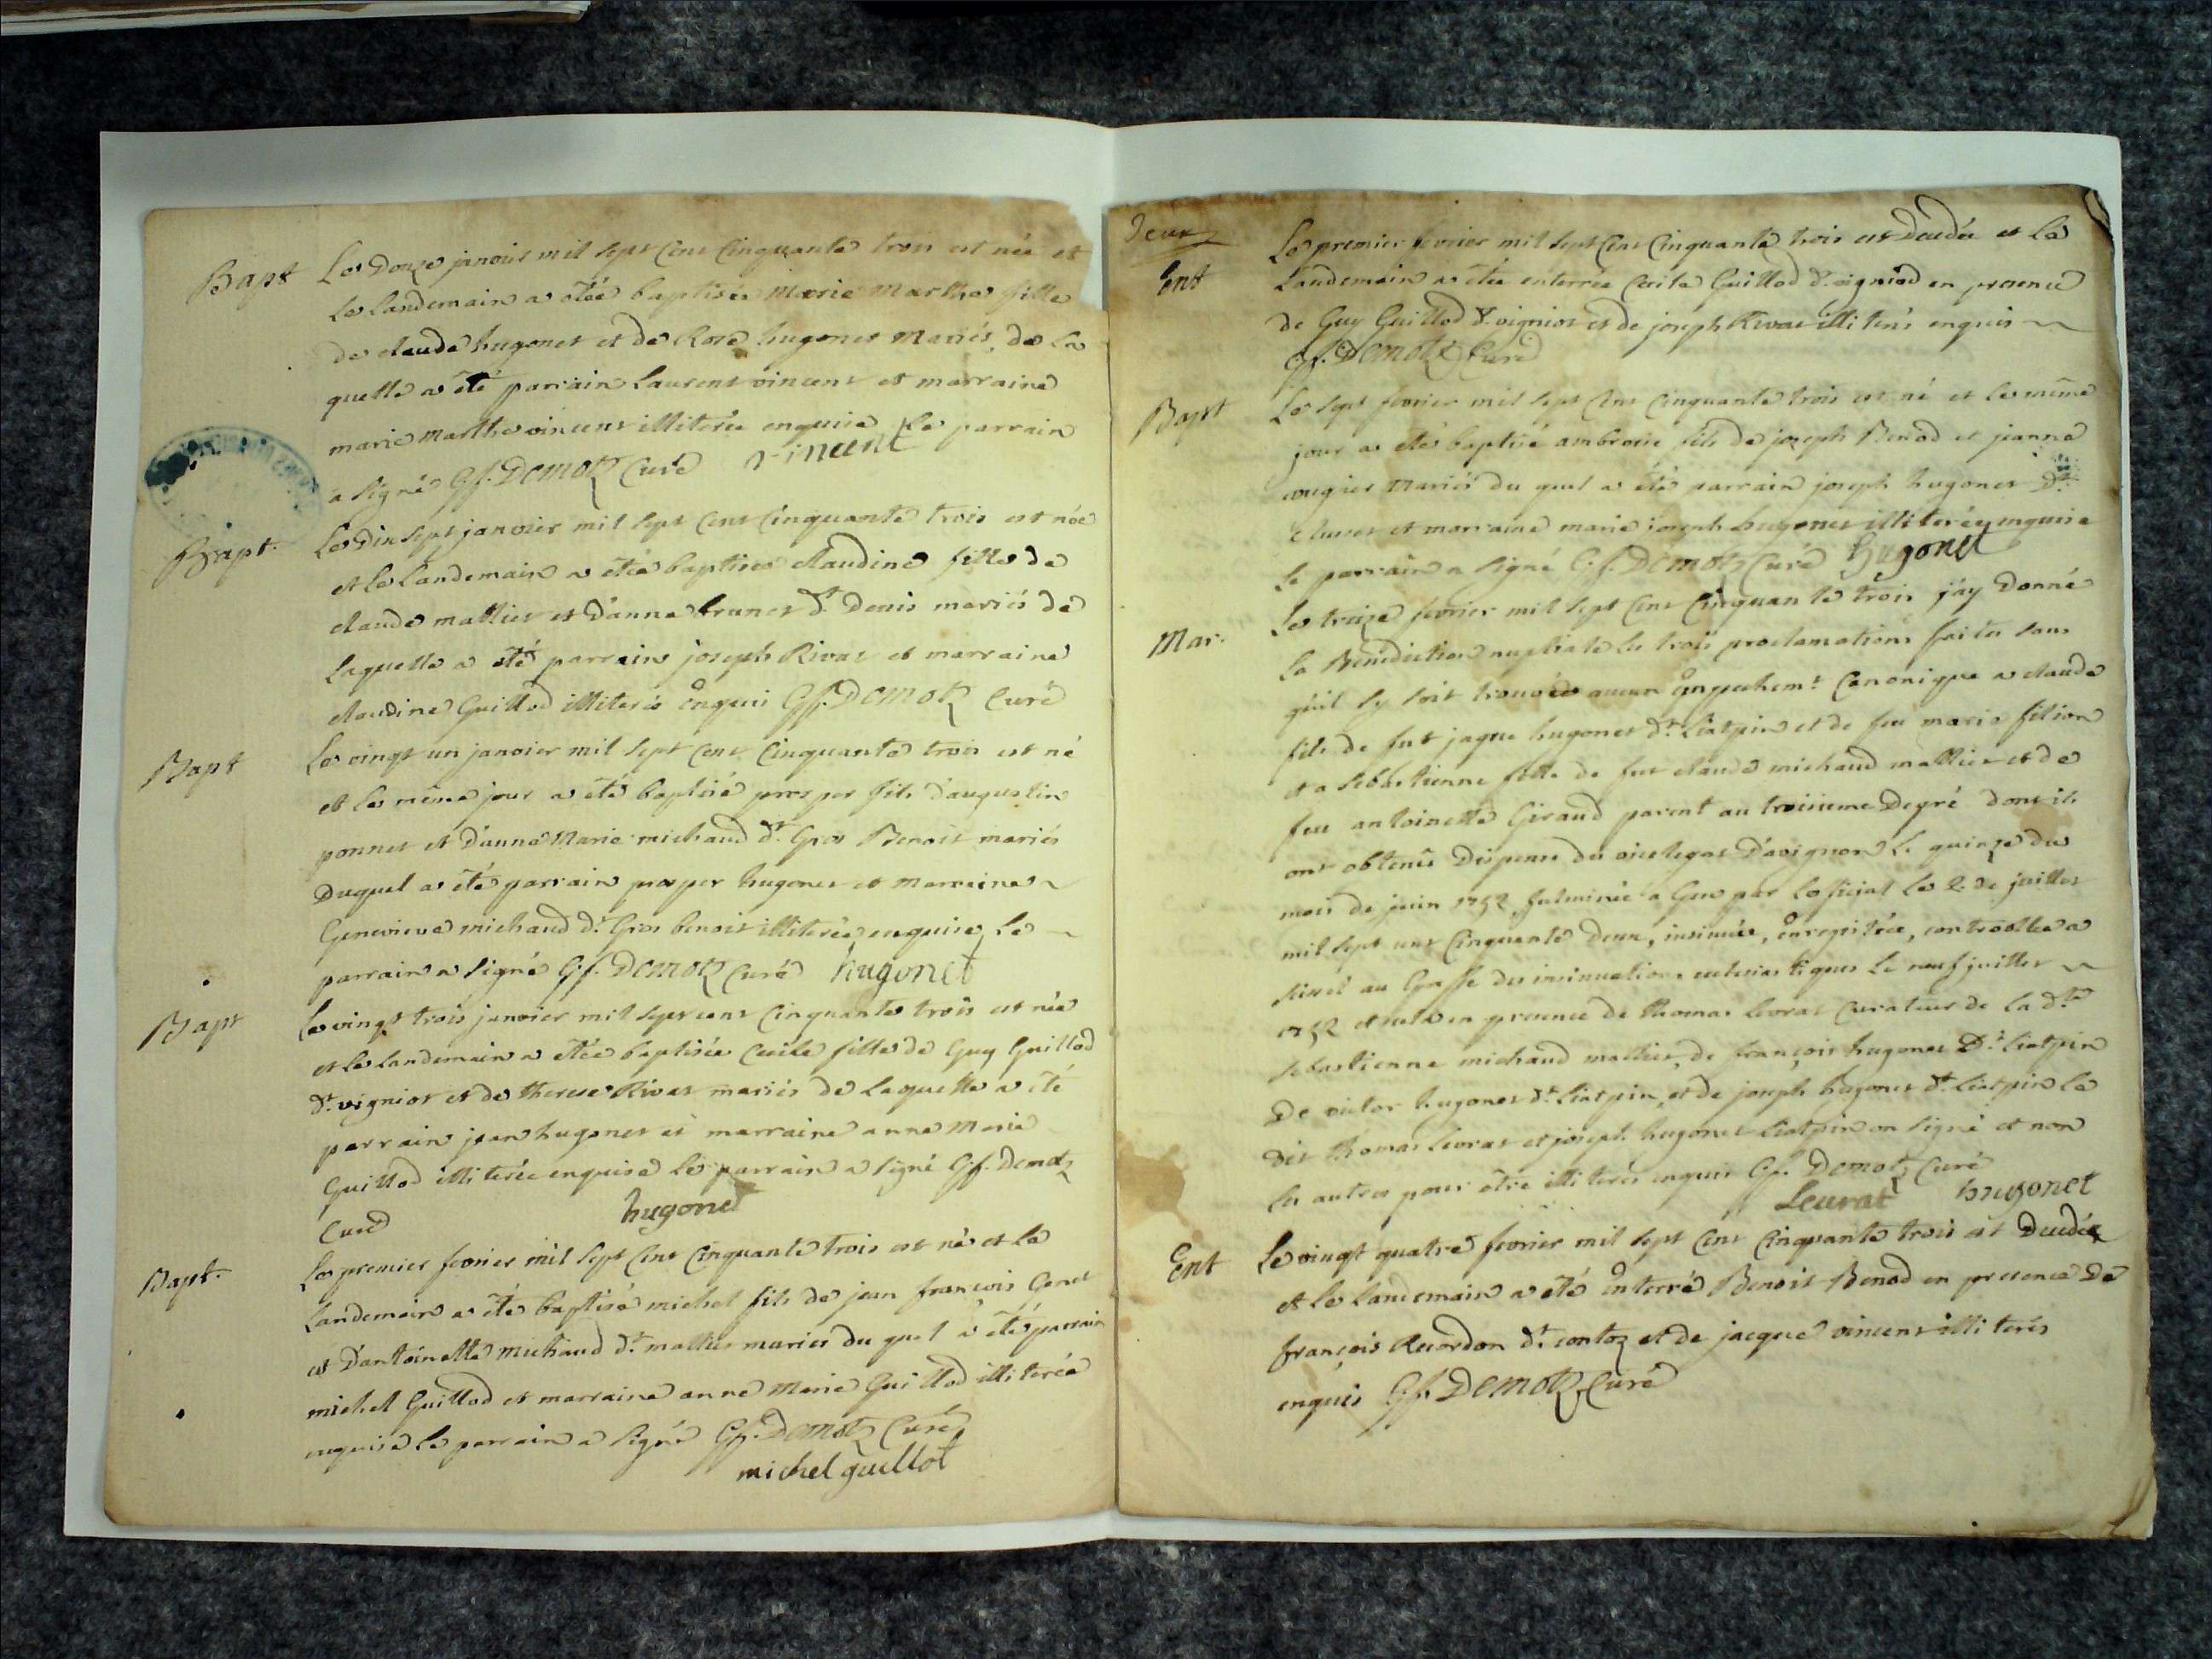 Bapt
Le Douze janvier mil sept Cent Cinquante trois est née et
Le landemain a étée baptisée Marie Marthe fille
de claude hugonet et de Rose hugonet Mariés, de la
quelle a été parrain Laurent vincent et marraine
marie marthe vincent illiterée enquise Le parrain
a signé Gf. Demotz Curé vincent
Bapt.
Le Dix sept janvier mil sept Cent Cinquante trois est née
et le Landemain a étée baptisée claudine fille de
claude mallier et D'anne brunet dt. Denis mariés de
laquelle a été parrain joseph Rivat et marraine
claudine Guillod illiterés enquis Gf. Demotz Curé
Bapt
Le vingt un janvier mil sept Cent Cinquante trois est né
et le même jour a été baptisé prosper fils d'augustin
ponnet et D'anne Marie michaud dt. Gros Benoit mariés
Duquel a été parrain prosper hugonet et Marraine
Genevieve michaud dt. Gros benoit illiterée enquise, Le
parrain a signé Gf. Demotz Curé hugonet
Bapt
Le vingt trois janvier mil sept cent Cinquante trois est née
et le landemain a étée baptisée Cecile fille de Guy Guillod
dt. vigniot et de therese Rivat mariés de Laquelle a été
parrain jean hugonet et marraine anne Marie
Guillod illiterée enquise le parrain a signé Gf. Demotz
Curé hugonet
Bapt.
Le premier fevrier mil sept Cent Cinquante trois est né et le
Landemain a été baptisé michel fils de jean francois Genet
et D'antoinette michaud dt. mallier mariés du quel a été parrain
michel Guillod et marraine anne Marie Guillod illiterée
enquise le parrain a signé Gf. Demotz Curé
michel guillot
Deux
Ent
Le premier fevrier mil sept Cent Cinquante trois est Decedée et Le
Landemain a étée enterrée Cecile Guillod dt. vigniod en presence
de Guy Guillod dt. vigniot et de joseph Rivat illiterés enquis
Gf. Demotz Curé
Bapt
Le sept fevrier mil sept Cent Cinquante trois est né et le même
jour a été baptisé ambroise fils de joseph Benod et jeanne
mariés du quel a été parrain joseph hugonet Dt.
et marraine marie joseph hugonet illiterée enquise
Le parrain a signé Gf. Demotz Curé hugonet
Mar.
Le treize fevrier mil sept Cent Cinquante trois j'ay Donné
La Benediction nuptiale les trois proclamations faites sans
qu'il sy soit trouvée aucun empechemt. Canonique a claude
fils de fut jaque hugonet dt. Liatpin et de feu marie filion
et a sebastienne fille de fut claude michaud mallier et de
feu antoinette Giraud parent au troisieme Degré dont ils
ont obtenûs Dispense du vicelegat D'avignon Le quinze du
mois de juin 1752 fulminée a Gex par Loficial Le 2. de juillet
mil sept cent Cinquante Deux, insinuée, enregistrée, controollée a
au Greffe des insinuations eclesiastiques Le neuf juillet
1752 et cela en presence de thomas Levrat Curateur de La dte.
sebastienne michaud mallier, de françois hugonet Dt. Liatpin
De victor hugonet dt. Liatpin, et de joseph hugonet dt. Liatpin Le
dit thomas Levrat et joseph hugonet Liatpin on signé et non
les autres pour être illiterés enquis Gf. Demotz Curé
Leurat hugonet
Ent
Le vingt quatre fevrier mil sept Cent Cinquante trois est Decedé
et Le Landemain a été enterré Benoit Benod en presence De
françois Recordon dt. contoz et de jacque vincent illiterés
enquis Gf. Demotz Curé